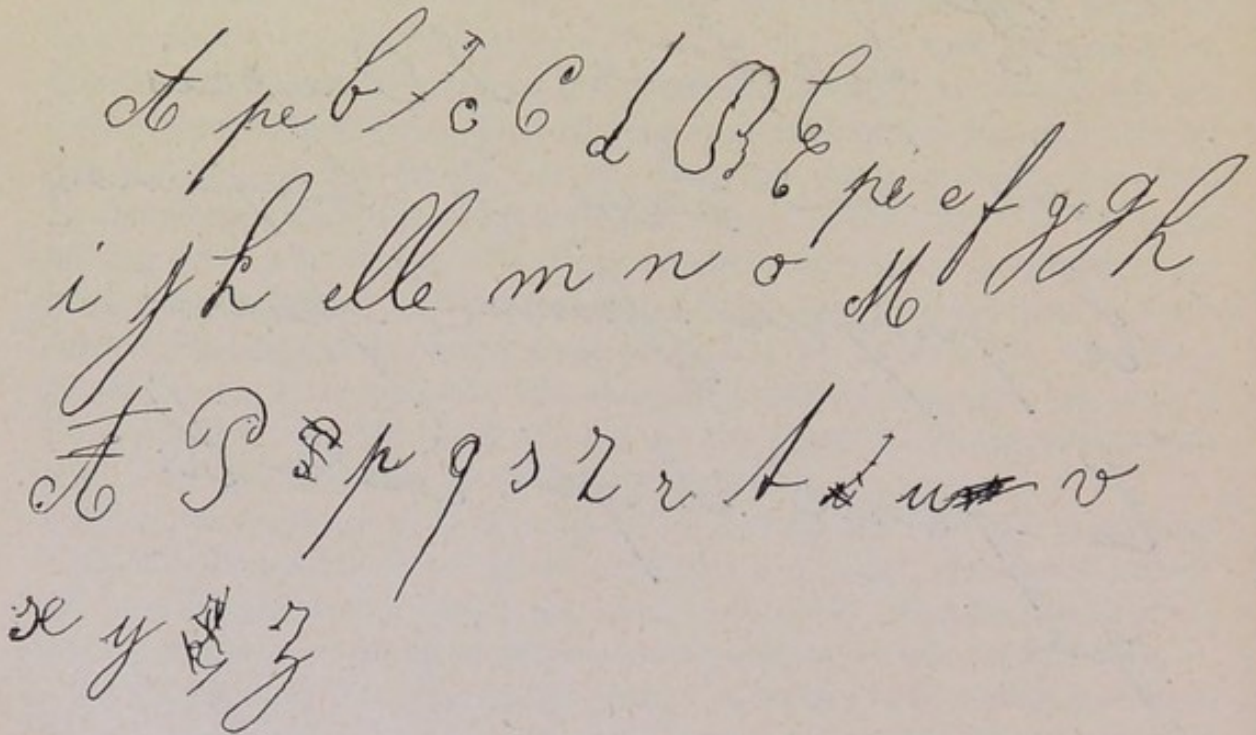 A pe b c C d B E pe e f g g h
i j k elle m n o M
A P p q s r r t u v
x y z